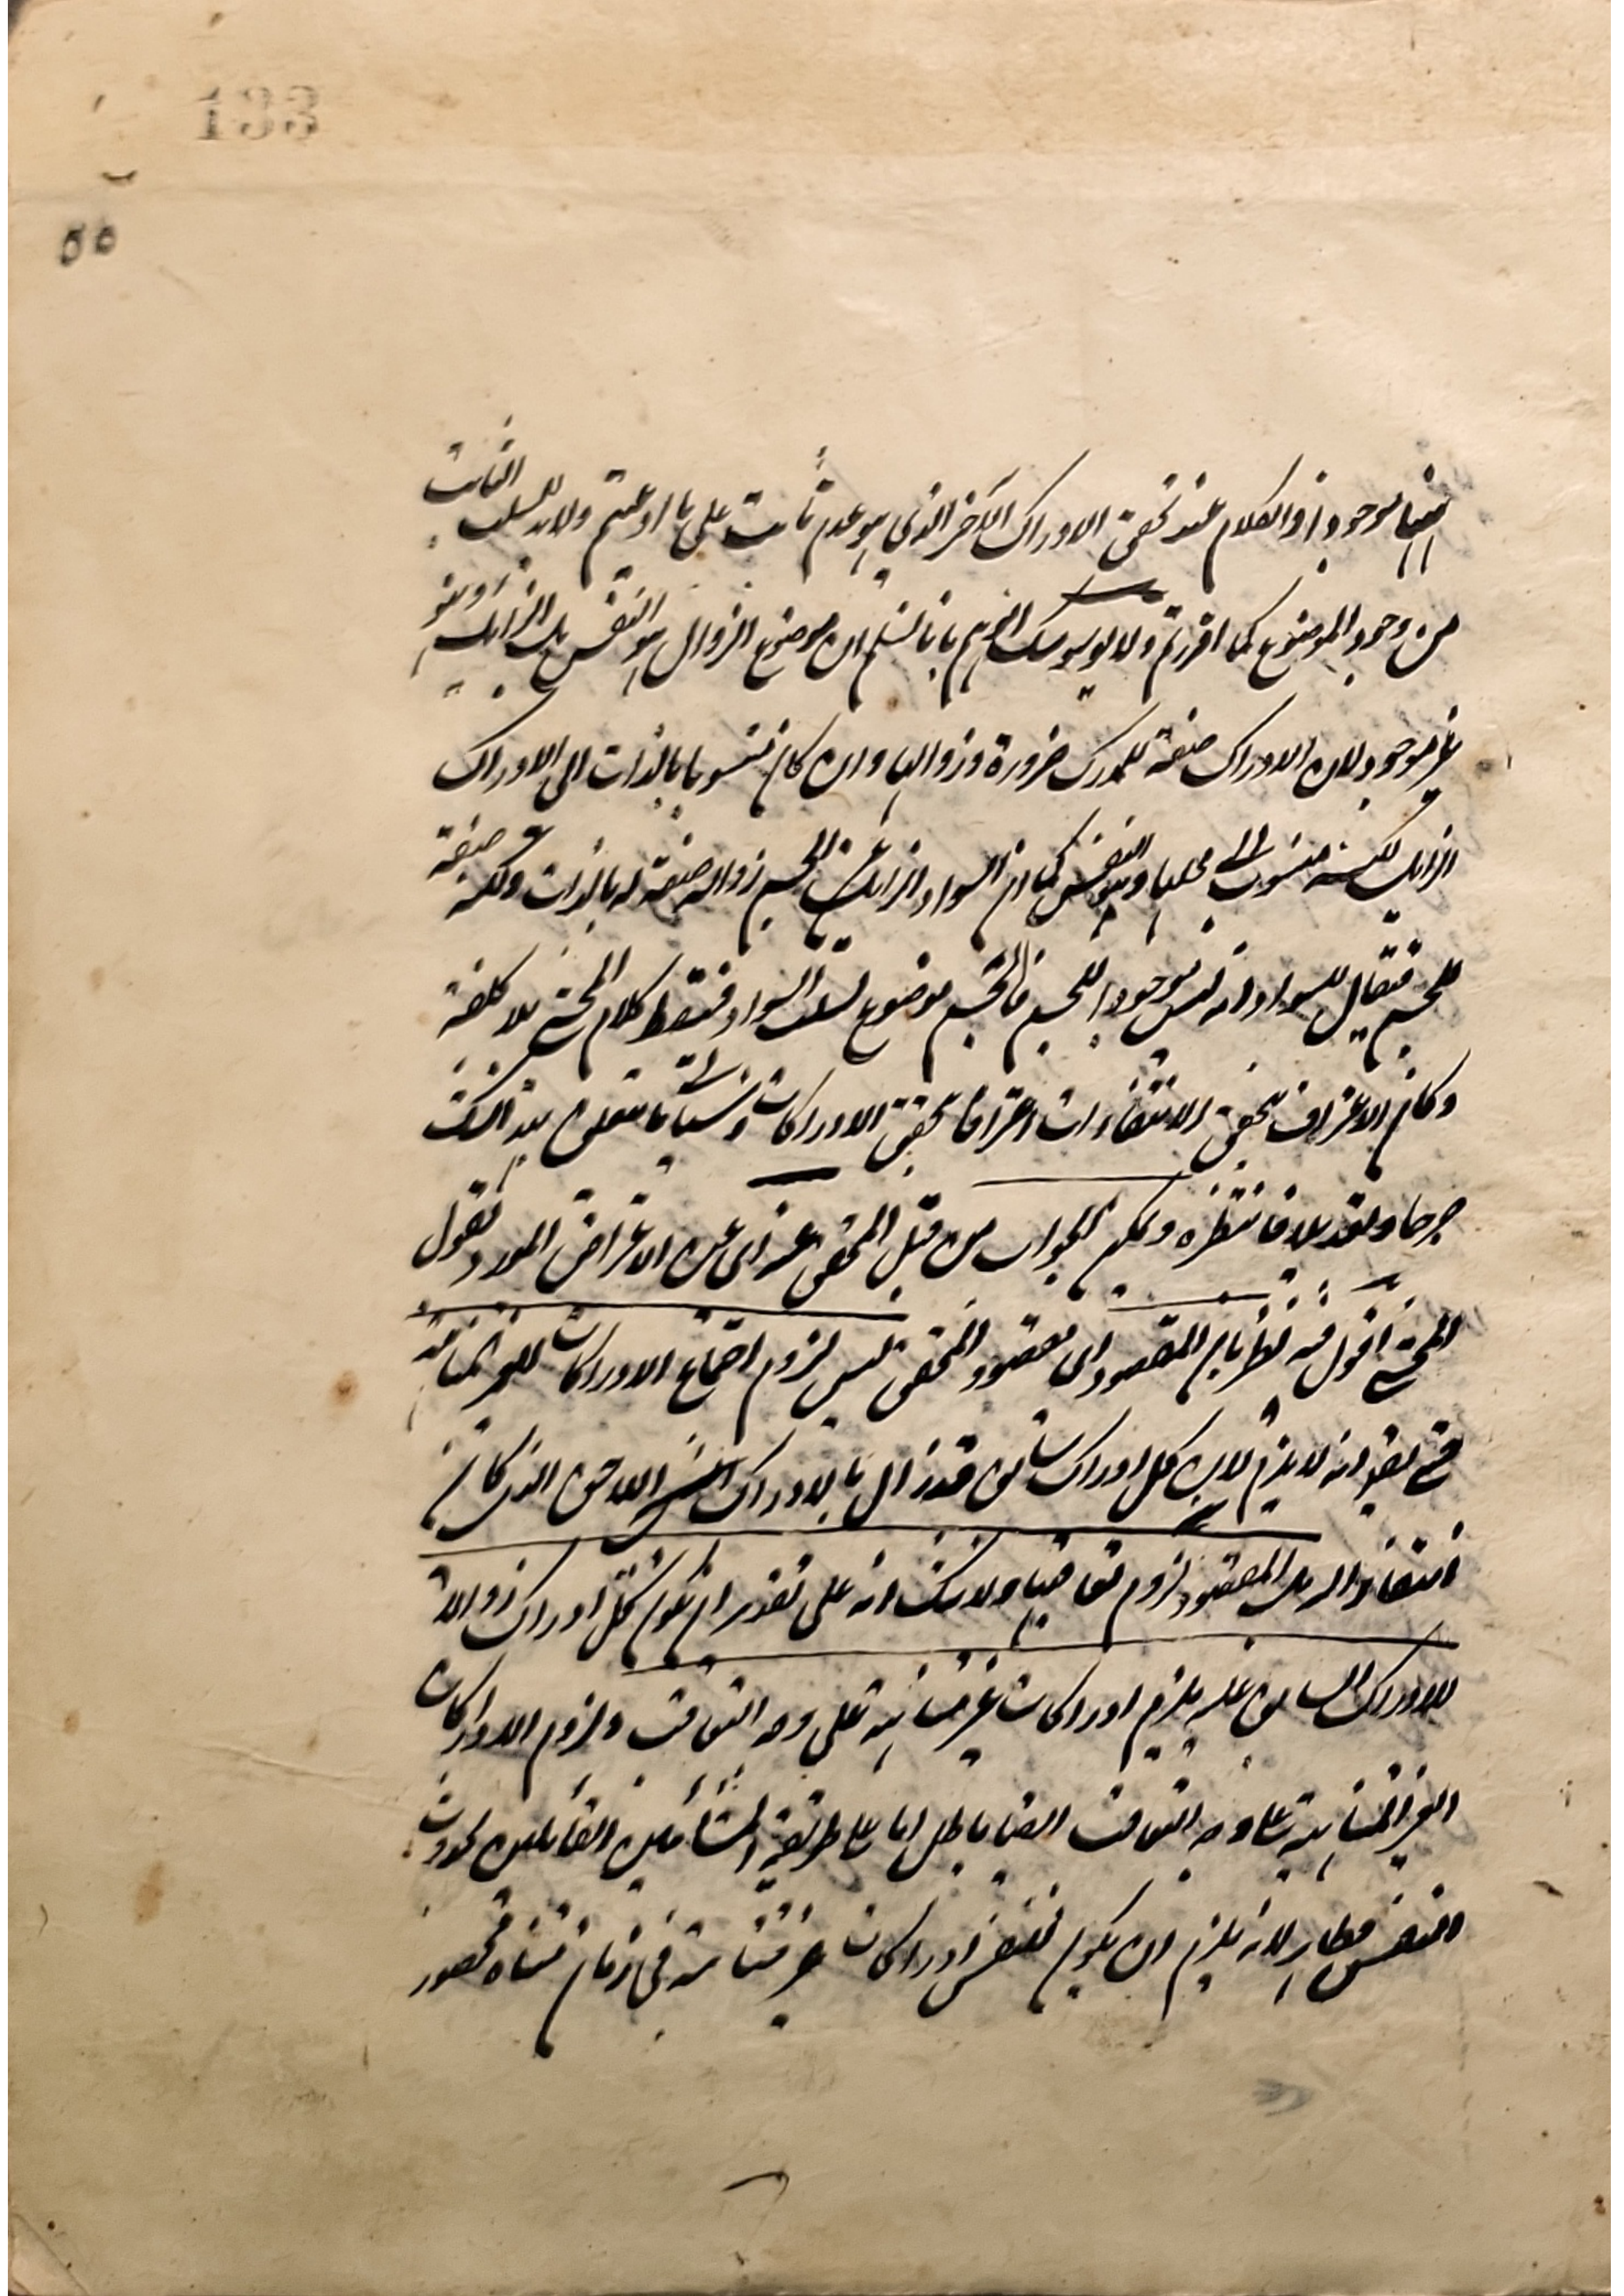 133
٥٥
ايضا موجودا ذ الكلام عند تحقق الادراك الآخر الذي هو عدم ثابت على ما ادعيتم ولابد للسلب الثابت
من وجود الموضوع كما اقررتم ولا يوسوسك الوهم بانا نسلم ان موضوع الزوال هو النفس بل الزايل وهو
غير موجود لان الادراك صفة للمدرك ضرورة وزوالها وان كان منسوبا بالذات الى الادراك
الزايل لكنه منسوب الى محلها وهو النفس كما ان السواد الزايل عن الجسم زواله صفة له بالذات ولكنه صفة
للجسم فيقال للسواد انه ليس موجودا للجسم فالجسم موضوع لسلب السواد فسقط كلام المحشي بلا كلفة
وكان الاعتراف بتحقق الانتفاءات اعترافا بتحقق الادراكات وسياتي ما يتعلق بهذا البحث
جرحا وتعديلا فانتظره ويمكن الجواب من قبل المحقق عنه اى عن الاعتراض المورد بقول
المحشي اقول فيه نظر بان المقصود اى مقصود المحقق ليس لزوم اجتماع الادراكات الغير المتناهية
حتى يقو انه لا يلزم لان كل ادراك سابق قد زال بالادراك اللاحق الذى كان
انتفاء له بل المقصود لزوم تعاقبها ولا شك انه على تقدير ان يكون كل ادراك زوالا
للادراك السابق عليه يلزم ادراكات غير متناهية على وجه التعاقب ولزوم الادراكات
الغير المتناهية على وجه التعاقب ايضا باطل اما على طريقة المشائين القائلين بحدوث
النفس فظاهر لانه يلزم ان يكون للنفس ادراكات غير متناهية في زمان متناه محصور